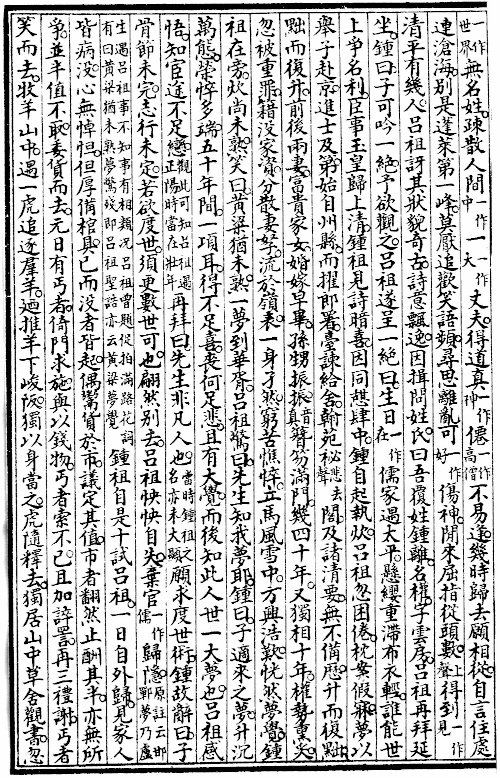 一作世界無名姓疎散人間一作中一一作大丈夫得道真一作神僊一作高僧不易逢幾時歸去願相從自言住處
連滄海別是蓬萊第一峰莫厭追歡笑語頻尋思離亂可一作好傷神閒來屈指從頭數上聲得到一作見
清平有幾人呂祖訝其狀貌奇古詩意飄逸因揖問姓氏曰吾覆姓鍾離名權字雲房呂祖再拜延
坐鍾曰子可吟一絕予欲觀之呂祖遂呈一絕曰生日一作在儒家遇太平懸纓重滯布衣輕誰能世
上爭名利臣事玉皇歸上清鍾祖見詩暗喜因同憩肆中鍾自起執炊呂祖忽困倦枕案假寐夢以
舉子赴京進士及第始自州縣而擢郎署臺諫給舍翰苑祕悲去聲閣及諸清要無不備歷升而復黜
黜而復升前後兩妻富貴家女婚嫁早畢孫甥振振音真簪笏滿門幾四十年又獨相十年權勢重炙
忽被重罪籍没家資分散妻孥流於嶺表一身孑然窮苦憔悴立馬風雪中方興浩歎恍然夢覺鍾
祖在旁炊尚未熟笑曰黃粱猶未熟一夢到華胥呂祖驚曰先生知我夢耶鍾曰子適來之夢升沉
萬態榮悴多端五十年間一頃耳得不足喜喪何足悲且有大覺而後知此人世一大夢也呂祖感
悟知宦途不足戀觀此可知呂祖遇正陽時當在壯年再拜曰先生非凡人也當時鍾祖之名亦未大顯願求度世術鍾故辭曰子
骨節未完志行未定若欲度世須更數世可也翩然別去呂祖怏怏自失棄官一作儒歸隱原註云邯鄲夢乃盧
生遇呂祖事不知事有相類況呂祖曾題促拍滿路花詞有曰黃粱猶未熟夢驚殘即呂祖聖誥亦云黃粱夢覺鍾祖自是十試呂祖一日自外歸見家人
皆病没心無悼怛但厚備棺具已而没者皆起偶鬻貨於市議定其值市者翻然止酬其半亦無所
爭並半值不取委貨而去元日有丐者倚門求施與以錢物丐者索不已且加誶詈再三禮謝丐者
笑而去牧羊山中遇一虎追逐羣羊迺推羊下峻阪獨以身當之虎隨釋去獨居山中草舍觀書忽